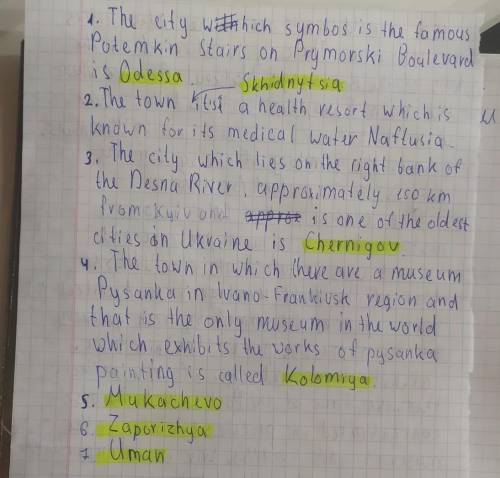 1. The city which symbos is the famous
Potemkin stairs on Prymorski Boulevard
is Odessa. Skhidnytsia
2. The town is a health resort which is
known for its medical water Naftusia.
3. The city which lies on the right bank of
the Desna River, approximately 150 km
from Kyiv and is one of the oldest
cities in Ukraine is Chernigov.
4. The town in which there are a museum
Pysanka in Ivano-Frankivsk region and
that is the only museum in the world
which exhibits the works of pysanka
painting is called Kolomiya.
5. Mukachevo
6. Zaporizhya
7. Uman